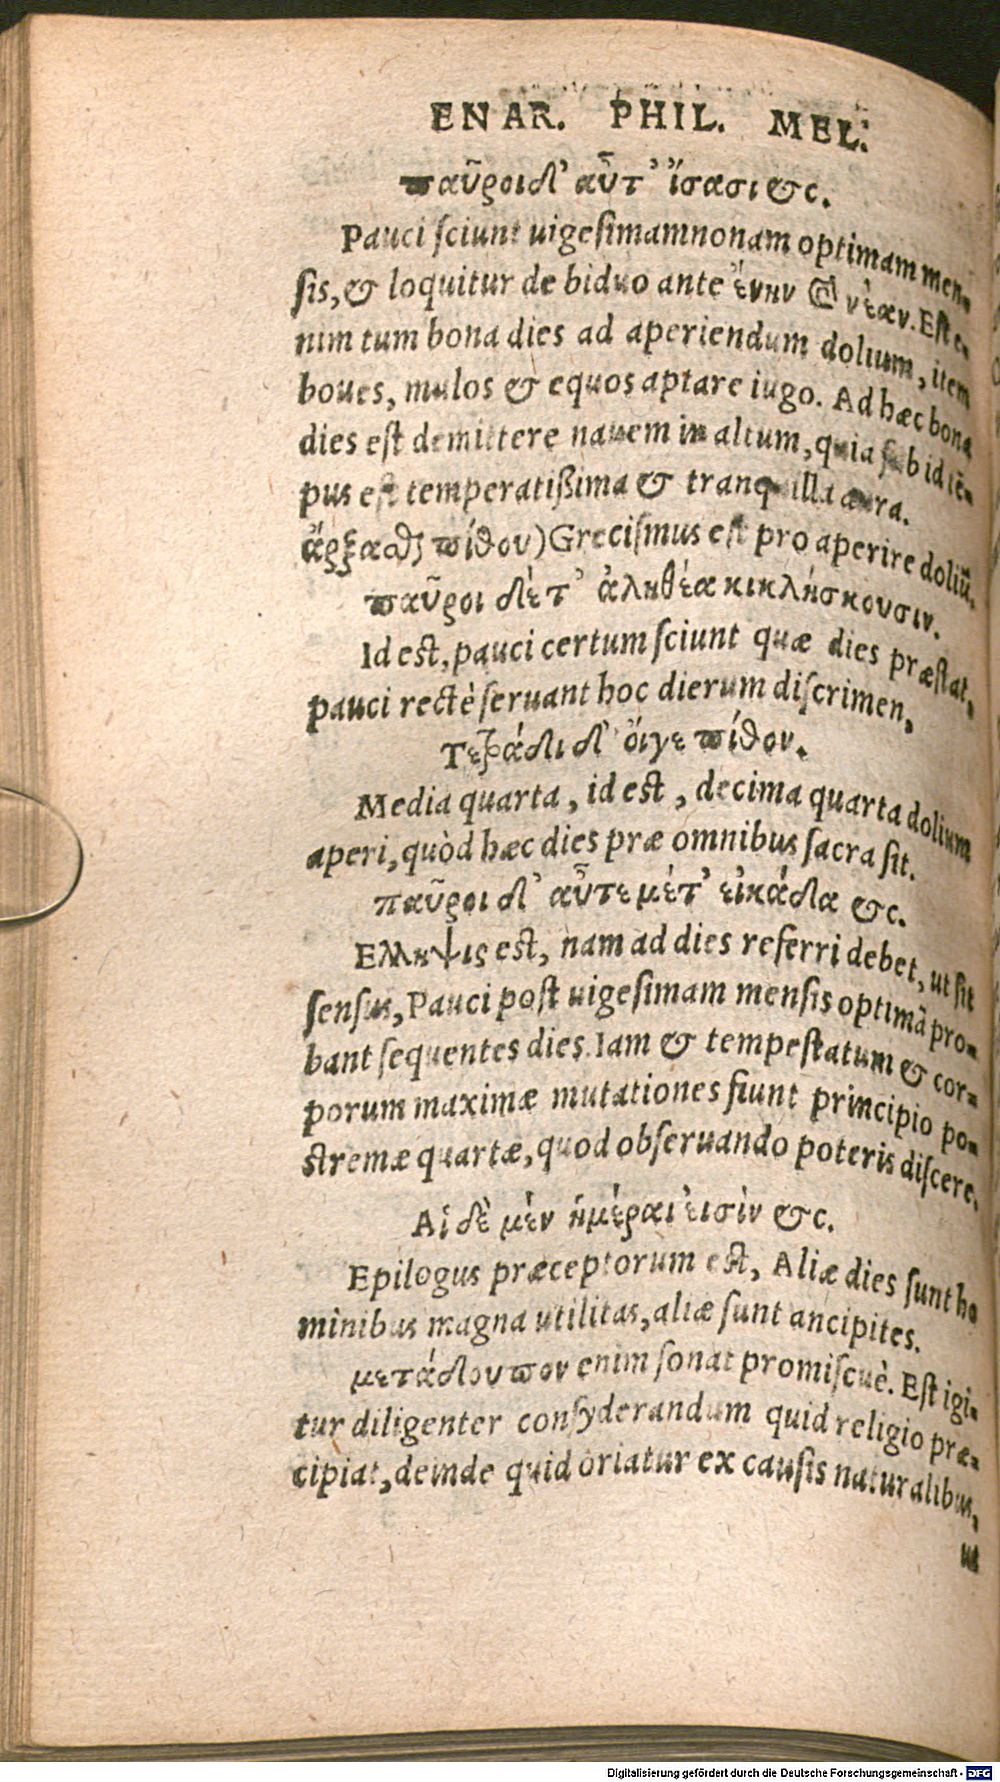 ENAR. PHIL. MEL.
παῦροι δ' αὖτ' ἴσασι &c.
Pauci sciunt uigesimamnonam optimam men-
sis, & loquitur de biduo ante ἕνην καὶ νέαν. Est e-
nim tum bona dies ad aperiendum dolium, item
boues, mulos & equos aptare iugo. Ad hæc bona
dies est demittere nauem in altum, quia sub id tē-
pus est temperatißima & tranquilla aura.
ἄρξασθαι πίθου) Grecismus est pro aperire doliū.
παῦροι δέ τ' ἀληθέα κικλήσκουσιν.
Id est, pauci certum sciunt quæ dies præstat,
pauci rectè seruant hoc dierum discrimen,
Τετράδι δ' οἶγε πίθον.
Media quarta, id est, decima quarta dolium
aperi, quòd hæc dies præ omnibus sacra sit.
παῦροι δ' αὖτε μέτ' εἰκάδα &c.
Ελλειψις est, nam ad dies referri debet, ut sit
sensus, Pauci post uigesimam mensis optimā pro-
bant sequentes dies. Iam & tempestatum & cor-
porum maximæ mutationes fiunt principio po-
stremæ quartæ, quod obseruando poteris discere.
Αἵ δὲ μὲν ἡμέραι εἰσὶν &c.
Epilogus præceptorum est, Aliæ dies sunt ho
minibus magna utilitas, aliæ sunt ancipites.
μετάδουπον enim sonat promiscuè. Est igi-
tur diligenter consyderandum quid religio præ-
cipiat, deinde quid oriatur ex causis naturalibus,
ut
Digitalisierung gefördert durch die Deutsche Forschungsgemeinschaft - DFG